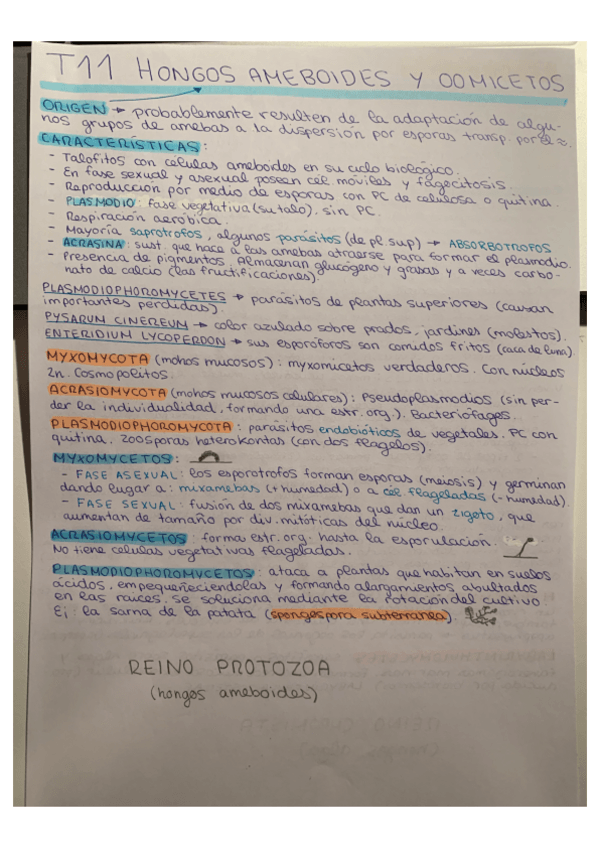 T11 HONGOS AMEBOIDES Y OOMICETOS
ORIGEN → probablemente resulten de la adaptación de algu-
nos grupos de amebas a la dispersión por esporas transp. por el
CARACTERÍSTICAS:
- Talofitos con celulas ameboides en su ciclo biológico.
- En fase sexual y asexual poseen cél. móviles y fagocitosis.
- Reproducción por medio de esporas con PC de celulosa o quitina.
- PLASMODIO: fase vegetativa (su talo). sin PC.
- Respiración aeróbica.
- Mayoría saprotrofos, algunos parásitos (de pl. sup) → ABSORBOTROFOS
- ACRASINA: sust. que hace a las amebas atraerse para formar el plasmodio.
- Presencia de pigmentos. Almacenan glucógeno y grasas y a veces carbo-
nato de calcio (las fructificaciones).
PLASMODIOPHOROMYCETES → parásitos de plantas superiores (causan
importantes perdidas).
PYSARUM CINEREUM → color azulado sobre prados, jardines (molestos).
ENTERIDIUM LYCOPERDON → sus esporóforos son comidos fritos (caca de luna)
MYXOMYCOTA (mohos mucosos): myxomicetos verdaderos. Con núcleos
2n. Cosmopolitos.
ACRASIOMYCOTA (mohos mucosos celulares): Pseudoplasmodios (sin per-
der la individualidad, formando una estr. org.). Bacteriófages.
PLASMODIOPHOROMYCOTA: parásitos endobióticos de vegetales. PC con
quitina. Zoosporas heterokontas (con dos flagelos).
MYXOMYCETOS:
- FASE ASEXUAL: los esporotrofos forman esporas (meiosis) y germinan
dando lugar a: mixamebas (+ humedad) o a cél flageladas (- humedad).
- FASE SEXUAL: fusión de dos mixamebas que dan un zigoto, que
aumentan de tamaño por div. mitóticas del núcleo.
ACRASIOMYCETOS: forma estr. org. hasta la esporulación.
No tiene celulas vegetativas flageladas.
PLASMODIOPHOROMYCETOS: ataca a plantas que habitan en suelos
ácidos, empequeñeciendolas y formando alargamientos abultados
en las raices. se soluciona mediante la rotación del cultivo.
Ej: la sarna de la patata (spongospora subterranea).
REINO PROTOZOA
(hongos ameboides)